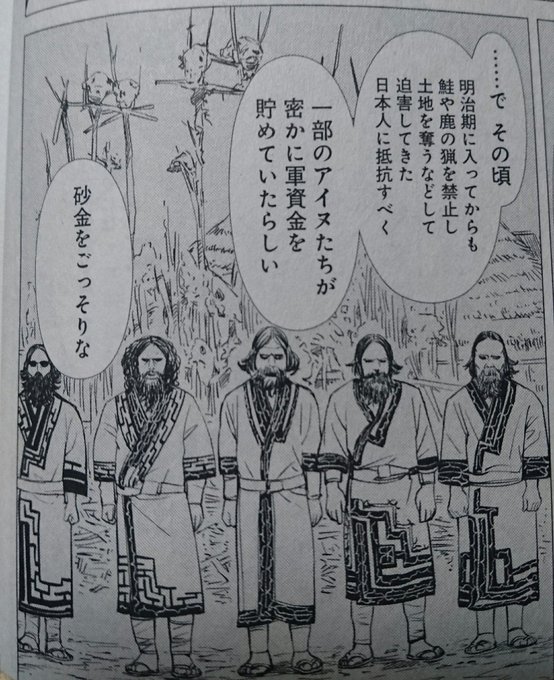 ……で その頃
明治期に入ってからも
鮭や鹿の猟を禁止し
土地を奪うなどして
迫害してきた
日本人に抵抗すべく
一部のアイヌたちが
密かに軍資金を
貯めていたらしい
砂金をごっそりな